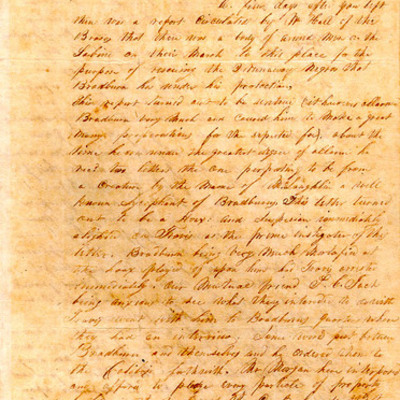 A few days after you left
there was a report circulated by Wm Hall of the
Brazos that there was a body of armed men on the
Sabine on their March to this place for the
purpose of rescuing the Runaway Negroes that
Bradburn has under his protection.
This report turned out to be sentine (it however allarm
Bradburn very Much and caused him to make a great
Many preparations for the expected foe), about the
time he was under the greatest degree of allarm he
rec'd two letters the one proporting to be from
a Creature by the Name of McLaughlin a well
known Sycophant of Bradburns This letter turned
out to be a Hoax and Suspicion immediately
alighted on Travis as the prime instigator of the
letter. Bradburn being very Much Mortified at
the hoax played of upon him has Travis arrested
immediately. Our Mutual friend P. C. Jack
being anxious to see what they intended to do with
Travis went with him to Bradburns quarters where
they had an interview. Some words past between
Bradburn and themselves and he ordered them to
the Calaboose forthwith. Mr Morgan here interposed
and offered to pledge every particle of property